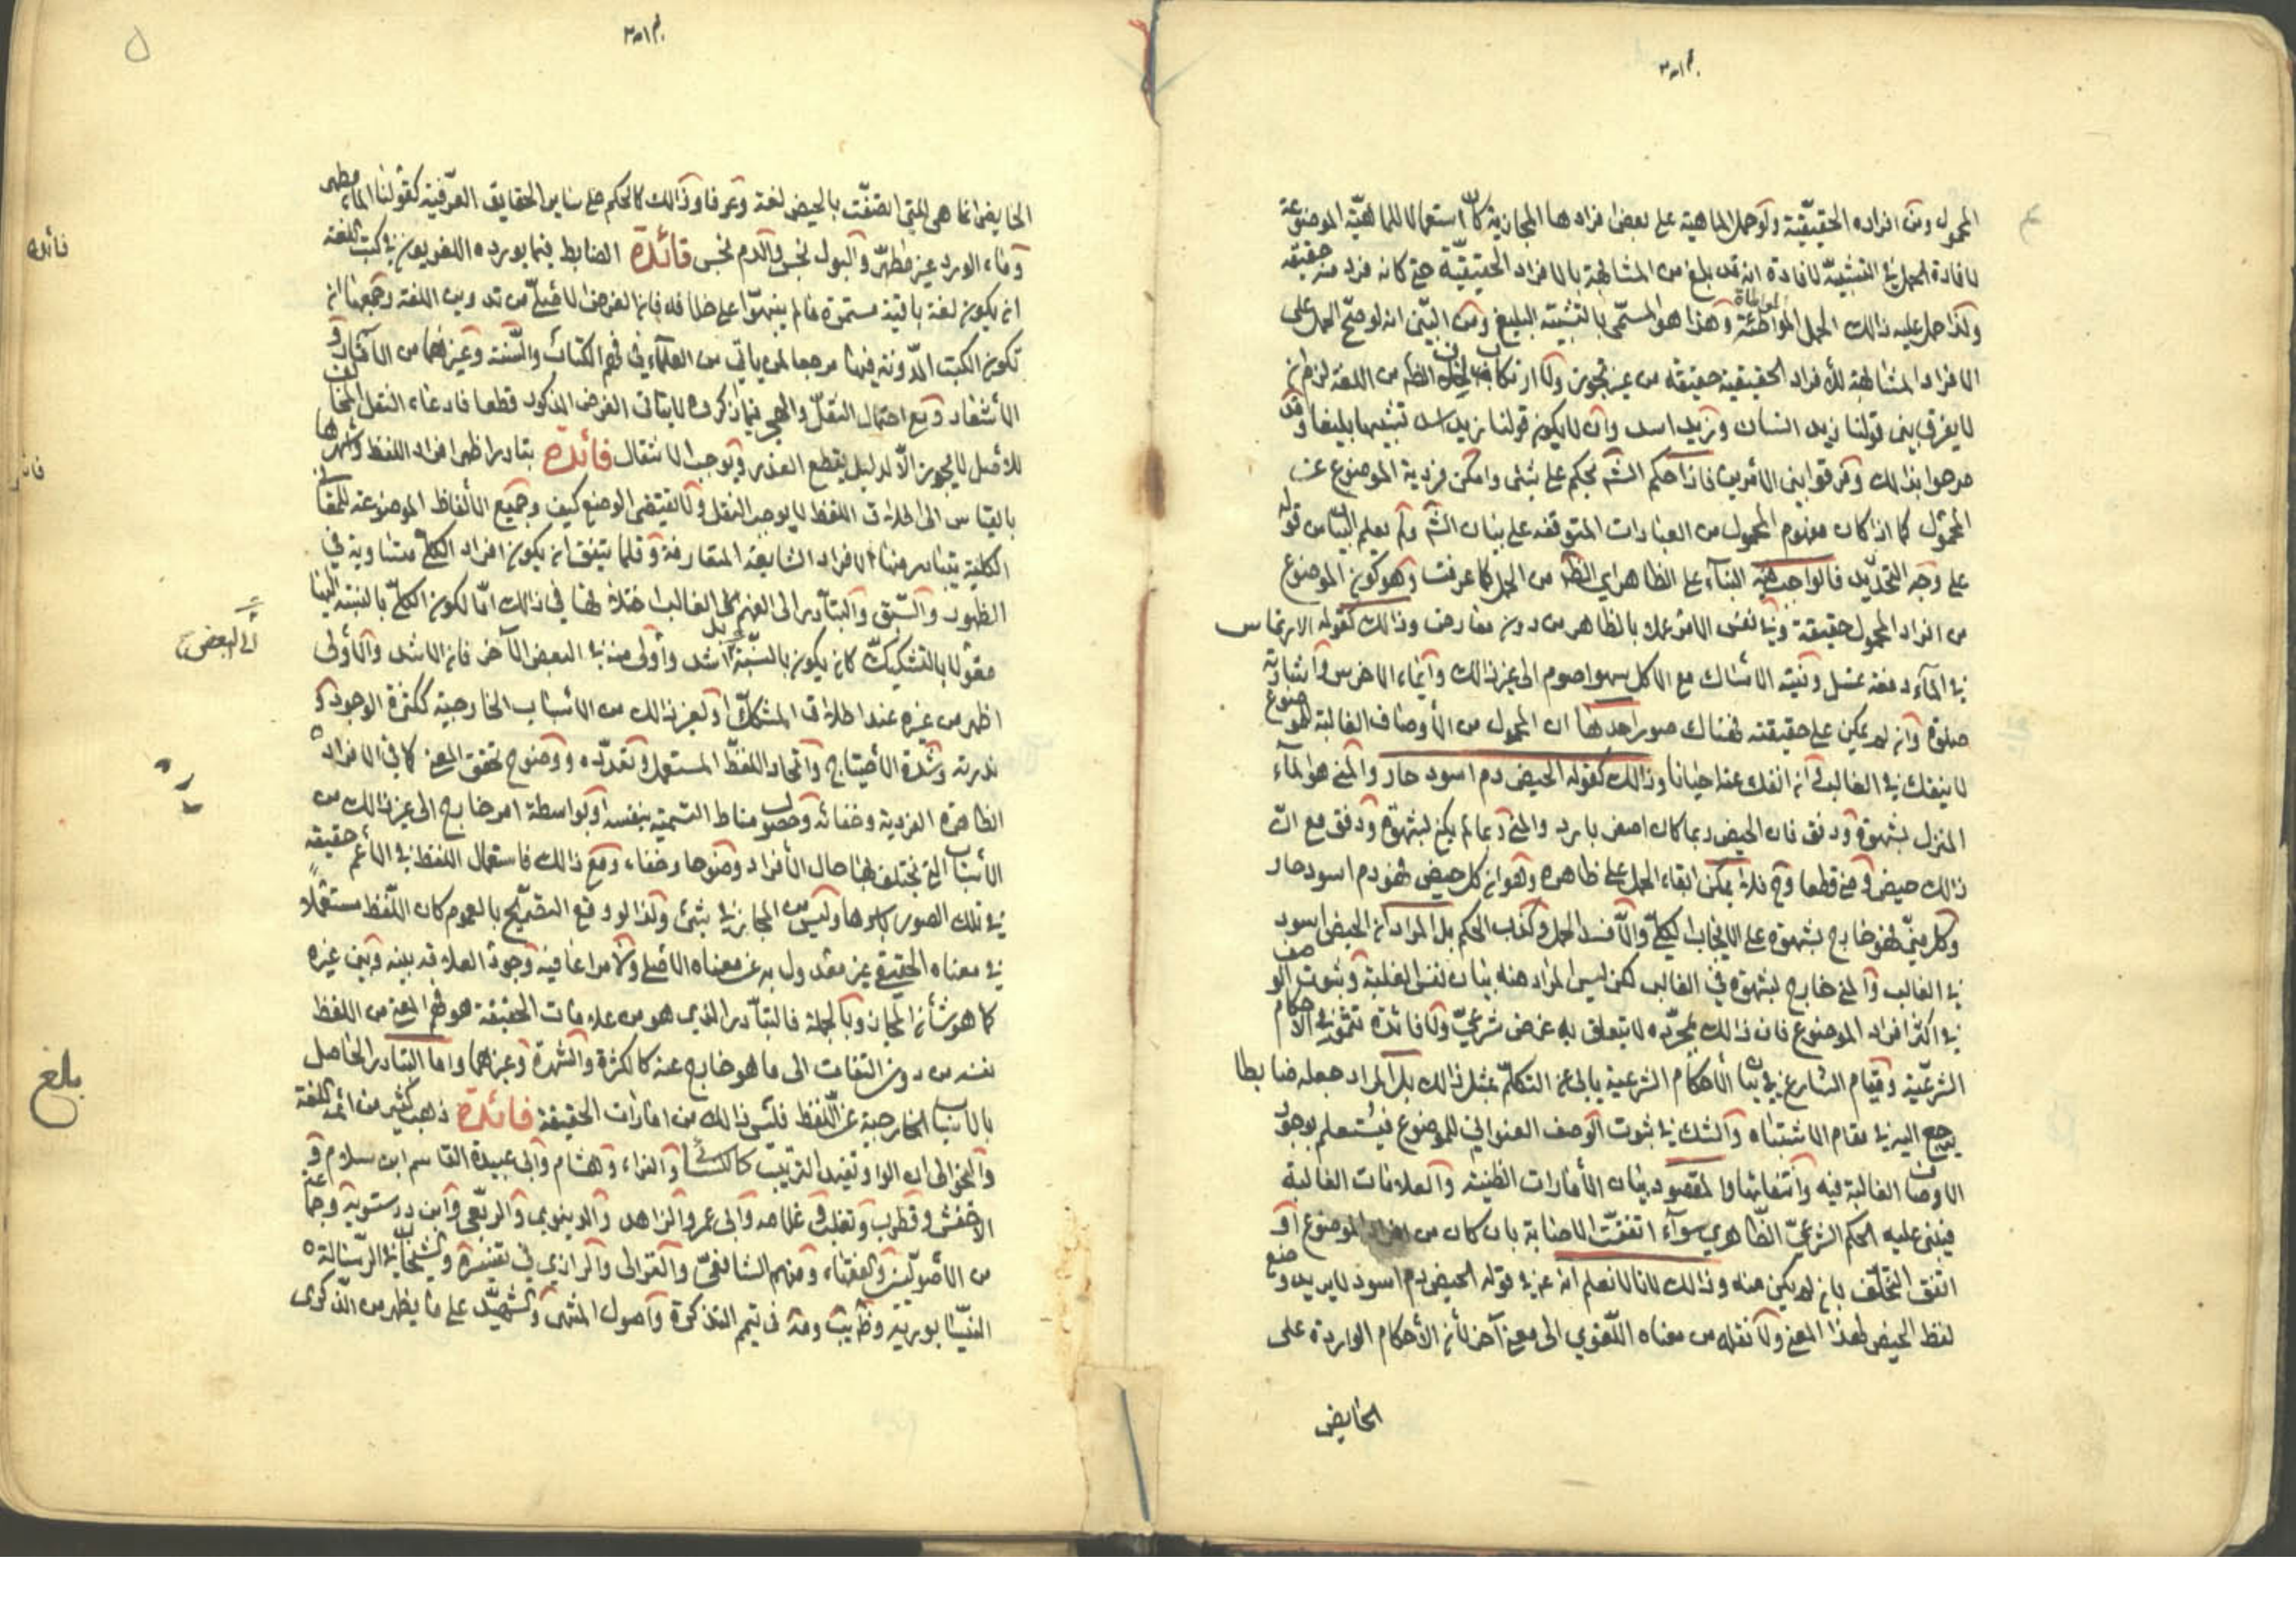 المحمول ومن افراده الحقيقية ولو حمل الماهية على بعض افرادها المجازية كان استعمالا للماهية الموضوعة
لافادة الحمل في التشبيه لافادة انه قد بلغ من المشابهة بالافراد الحقيقية حتى كانه فرد منه حقيقة
ولذا حمل عليه ذالك الحمل المواطئة وهذا هو المسمى بالتشبيه البليغ ومن البين انه لو صح الحمل على
الافراد المشابهة للأفراد الحقيقية حقيقة من غير تجوز ولا ارتكاب خلاف الظم من اللغة لزم ان
لا يفرق بين قولنا زيد انسان وزيد اسد وان لا يكون قولنا زيد اسد تشبيها بليغا وقد
صرحوا بذالك وفرقوا بين الأمرين فاذا حكم الشم بحكم على شئ وامكن فردية الموضوع عن
المحمول كما اذا كان مفهوم المحمول من العبادات المتوقفه على بيان الشم ولم يعلم البيان من قوله
على وجه التحديد فالواجب البناء على الظاهر اي الظم من الحمل كما عرفت وهو كون الموضوع
من افراد المحمول حقيقة وفي نفس الامر عملا بالظاهر من دون معارض وذالك كقوله الارتماس
في الماء دفعة غسل ونية الامساك مع الاكل سهوا صوم الى غير ذالك وايماء الاخرس واشارته
صلوة وان لم يمكن على حقيقته فهناك صور احدها ان المحمول من الأوصاف الغالبة للموضوع
لا ينفك في الغالب وان انفك عنه احيانا وذالك كقوله الحيض دم اسود حار والمني هو الماء
المنزل بشهوة ودفق فان الحيض ربما كان اصفر بارد والمني ربما لم يكن بشهوة ودفق مع ان
ذالك حيض ومني قطعا وح فلا يمكن ابقاء الحمل على ظاهره وهو ان كل حيض فهو دم اسود حار
وكل مني فهو خارج بشهوة على الايجاب الكلي والا فسد الحمل وكذب الحكم بل المراد ان الحيض اسود
في الغالب والمني خارج بشهوة في الغالب لكن ليس المراد منه بيان نفس الغلبة وثبوت الوصف
في اكثر افراد الموضوع فان ذالك بمجرده لا يتعلق به غرض شرعي ولا فائدة تثمر في الاحكام
الشرعية وقيام الشارع في بيان الأحكام الشرعية يابى عن التكلم بمثل ذالك بل المراد جعله ضابطا
يرجع اليه في مقام الاشتباه والشك في ثبوت الوصف العنواني للموضوع فيستعلم بوجود
الاوصاف الغالبة فيه وانتفائها والمقصود بيان الأمارات الظنية والعلامات الغالبة
فيبنى عليه الحكم الشرعي الظاهري سواء اتفقت الاصابة بان كان من افراد الموضوع او
اتفق التخلف بان لم يكن منه وذالك لانا لا نعلم انه ع في قوله الحيض دم اسود لا يريد وضع
لفظ الحيض لهذا المعنى ولا نقله من معناه اللغوي الى معنى آخر لأن الأحكام الواردة على
الحايض
٥
الحايض انما هي التي اتصفت بالحيض لغة وعرفا وذالك كالحكم على ساير الحقايق العرفية كقولنا الماء مطهر
وماء الورد غير مطهر والبول نجس والدم نجس فائدة الضابط فيما يورده اللغويون في كتب اللغة
ان يكون لغة باقية مستمرة فما لم ينبهوا على خلافه فان الغرض الاصلي من تدوين اللغة وجمعها ان
تكون الكتب المدونة فيها مرجعا لمن ياتي من العلماء في فهم الكتاب والسنة وغيرهما من الآثار و
الأشعار ومع احتمال النقل والهجر فيما ذكروه لا يتاتى الغرض المذكور قطعا فادعاء النقل المخالف
للأصل لا يجوز الا لدليل يقطع العذر ويوجب الانتقال فائدة تبادر اظهر افراد اللفظ واشهرها
بالقياس الى اطلاق اللفظ لا يوجب النقل ولا يقتضي الوضع كيف وجميع الألفاظ الموضوعة للمعاني
الكلية يتبادر منها الافراد الشايعة المتعارفة وقلما يتفق ان يكون افراد الكلي متساوية في
الظهور والسبق والتبادر الى الفهم بل الغالب اختلافها في ذالك اما لكون الكلي بالنسبة اليها
مقولا بالتشكيك كان يكون بالنسبة اشد وأولى منه في البعض الآخر فان الاشد والأولى
الى البعض
اظهر من غيره عند اطلاق المشكك او لغير ذالك من الأسباب الخارجية ككثرة الوجود و
ندرته وشدة الأحتياج واتحاد اللفظ المستعمل وتعدده ووضوح تحقق المعنى كما في الافراد
الظاهرة الفردية وخفائه وحصول مناط التسمية بنفسه او بواسطة امر خارج الى غير ذالك من
الأسباب التي تختلف بها حال الأفراد وضوحا وخفاء ومع ذالك فاستعمال اللفظ في الأعم حقيقة
في تلك الصور باسرها وليس من المجاز في شئ ولذا لو وقع التصريح بالعموم كان اللفظ مستعملا
في معناه الحقيقي غير معدول به عن معناه الأصلي ولا مراعا فيه وجود العلاقة بينه وبين غيره
كما هو شأن المجاز وبالجملة فالتبادر الذي هو من علامات الحقيقة هو فهم المعنى من اللفظ
نفسه من دون التفات الى ما هو خارج عنه كالكثرة والشهرة وغيرهما واما التبادر الحاصل
بالاسباب الخارجية عن اللفظ فليس ذالك من امارات الحقيقة فائدة ذهب كثير من ائمة اللغة
والنحو الى ان الواو تفيد الترتيب كالكسائي والفراء وهشام وابى عبيدة القاسم ابن سلام و
الاخفش وقطرب وثعلب وغلامه وابى عمرو الزاهد والدينوري والربعي وابن درستويه وجماعة
من الأصوليين والفقهاء ومنهم الشافعي والغزالى والرازي في تفسيره والشيخان في الرسالة
النيشابورية وظ يب ومة في تيمم التذكرة واصول المنتهى والشهيد على ما يظهر من الذكرى
فائدة
بلغ